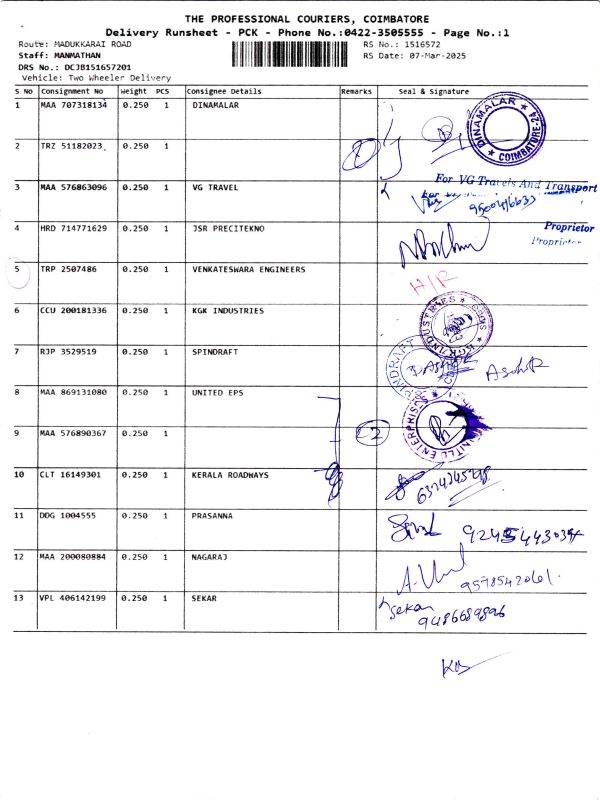 THE PROFESSIONAL COURIERS, COIMBATORE
Delivery Runsheet - PCK - Phone No.:0422-3505555 - Page No.:1
Route: MADUKKARAI ROAD RS No.: 1516572
Staff: MANMATHAN RS Date: 07-Mar-2025
DRS No.: DCJB151657201
Vehicle: Two Wheeler Delivery
S No Consignment No Weight PCS Consignee Details Remarks Seal & Signature
1 MAA 707318134 0.250 1 DINAMALAR
DINAMALAR ★ COIMBATORE-24 ★
2 TRZ 51182023 0.250 1
3 MAA 576863096 0.250 1 VG TRAVEL
For VG Travels And Transport
4 HRD 714771629 0.250 1 JSR PRECITEKNO
Proprietor
Proprietor
5 TRP 2507486 0.250 1 VENKATESWARA ENGINEERS H/R
6 CCU 200181336 0.250 1 KGK INDUSTRIES
7 RJP 3529519 0.250 1 SPINDRAFT
SPINDRAFT
Ashok
8 MAA 869131080 0.250 1 UNITED EPS
9 MAA 576890367 0.250 1 2
10 CLT 16149301 0.250 1 KERALA ROADWAYS
11 DDG 1004555 0.250 1 PRASANNA
12 MAA 200080884 0.250 1 NAGARAJ
9578542061
13 VPL 406142199 0.250 1 SEKAR
Sekar
9486689896